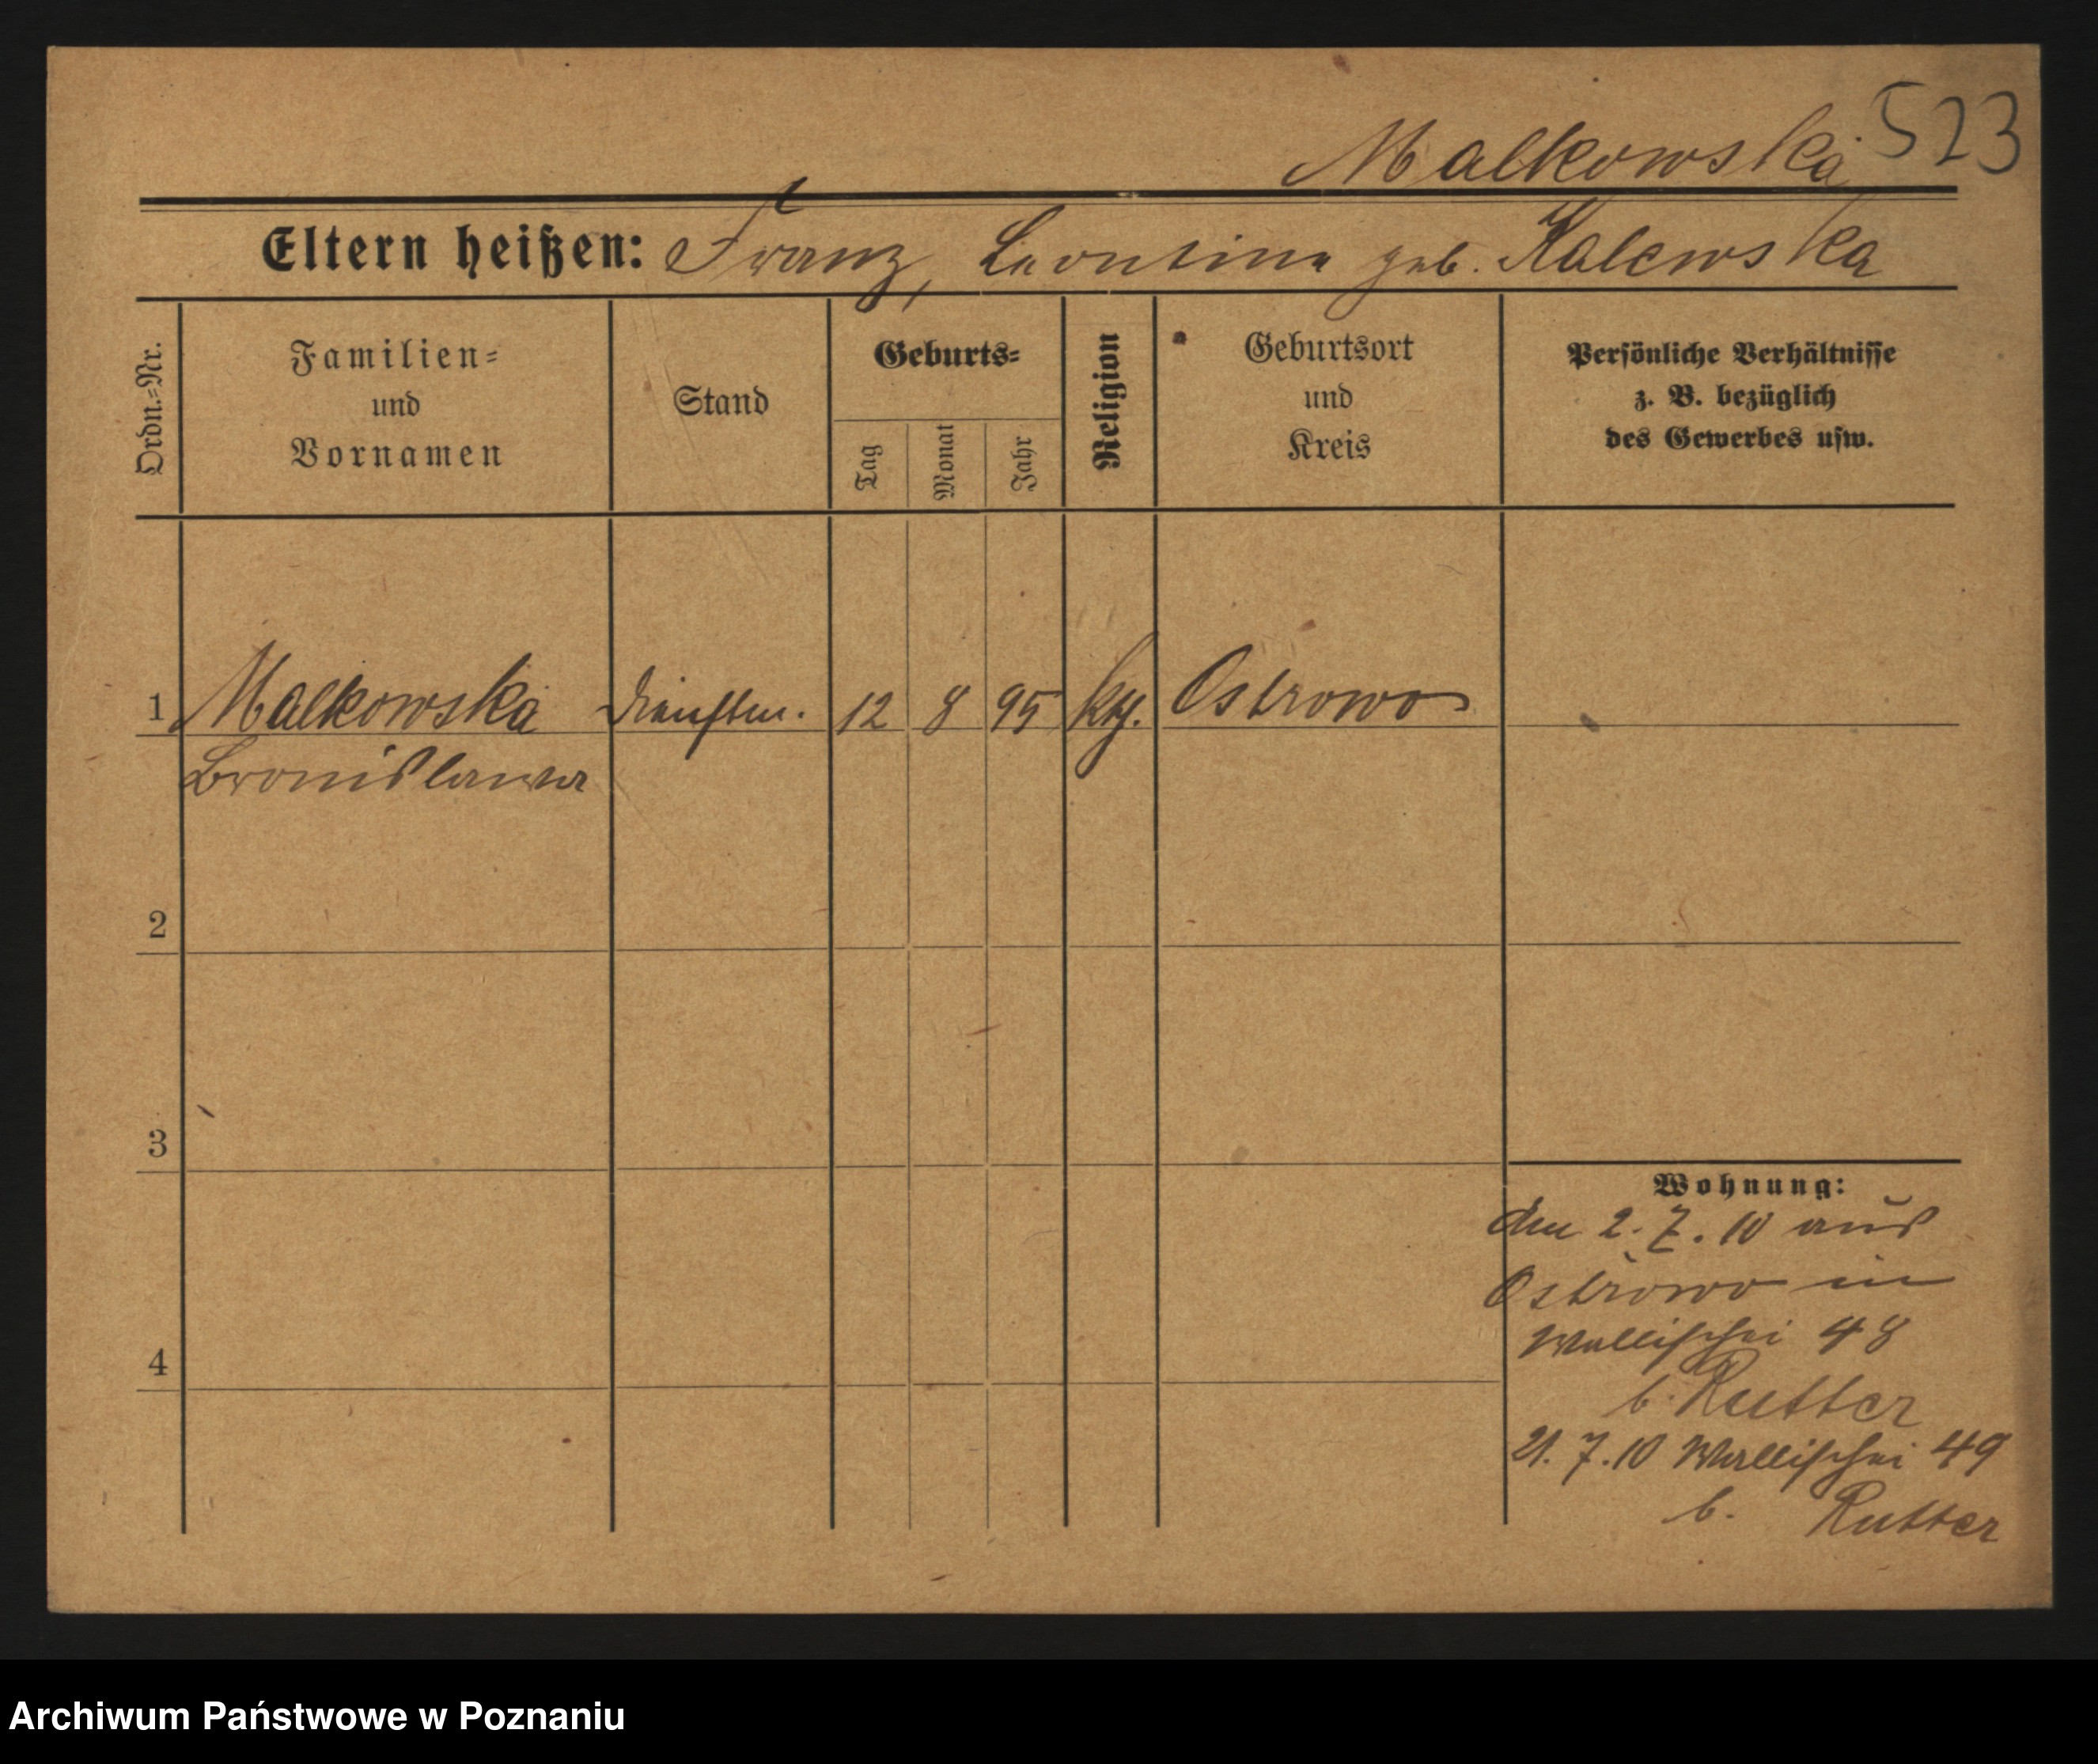 523
Malkowska
Eltern heißen: Franz, Leontine geb. Kalewska
Ordn.-Nr.
Familien-
und
Vornamen
Stand
Geburts-
Tag
Monat
Jahr
Religion
Geburtsort
und
Kreis
Persönliche Verhältnisse
z. B. bezüglich
des Gewerbes usw.
1 Malkowska Dienstm. 12 8 95 kth. Ostrowo
Bronislawa
2
3
4
Wohnung:
den 2.7.10 aus
Ostrowo in
Wallischei 48
b. Rutter
21.7.10 Wallischei 49
b. Rutter
Archiwum Państwowe w Poznaniu